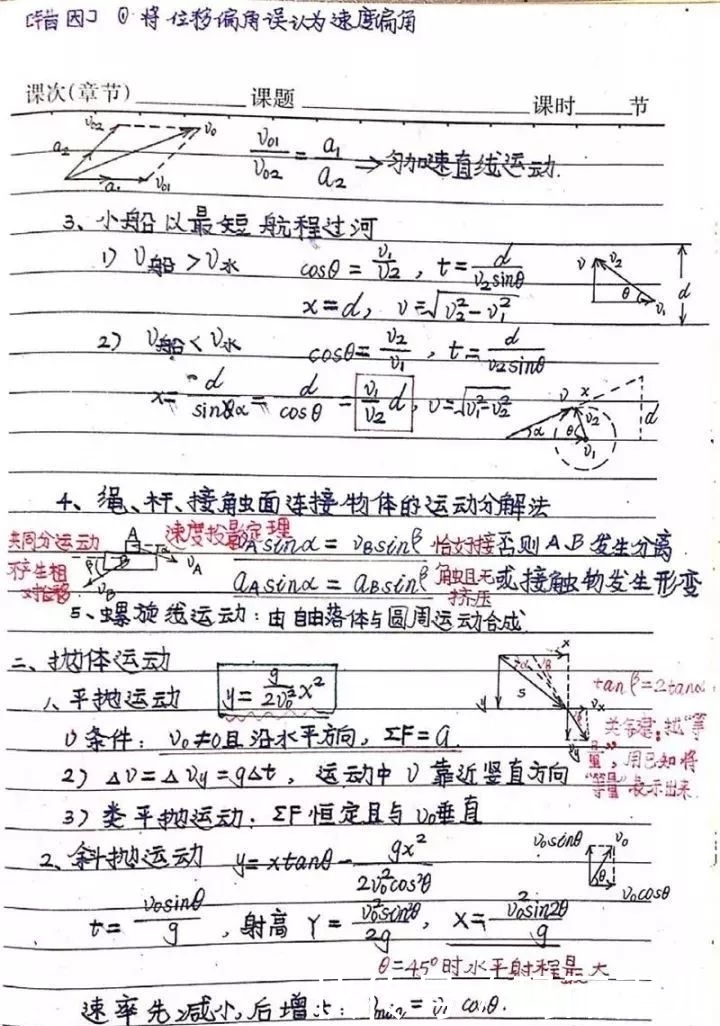 [错因] ① 将位移偏角误认为速度偏角
课次(章节) 课题 课时 节
v₀₂ v₀ a₂ a₁ v₀₁
v₀₁/v₀₂ = a₁/a₂ → 匀加速直线运动.
3、小船以最短航程过河
1) v船 > v水 cosθ = v₁/v₂, t = d/(v₂sinθ)
x = d, v = √(v₂² - v₁²)
v v₂ θ v₁ d
2) v船 < v水 cosθ = v₂/v₁, t = d/(v₂sinθ)
x = d/sinα = d/cosθ = v₁/v₂ d, v = √(v₁² - v₂²)
v x v₂ α θ v₁ d
4、绳、杆、接触面连接物体的运动分解法
共同分运动
不产生相
对位移
A B α β v_A v_B
速度投影定理
v_A sinα = v_B sinβ 恰好接 否则A、B发生分离
a_A sinα = a_B sinβ 触且无 或接触物发生形变
挤压
5、螺旋线运动：由自由落体与圆周运动合成
二、抛体运动
1、平抛运动 y = g/(2v₀²) x²
x α β y s v_x v_y
tanβ = 2tanα
关键：找"等
量"，用已知将
"等量"表示出来
1) 条件： v₀≠0且沿水平方向, ΣF = G.
2) Δv = Δv_y = gΔt, 运动中v靠近竖直方向
3) 类平抛运动. ΣF恒定且与v₀垂直
2、斜抛运动 y = xtanθ - gx²/(2v₀²cos²θ)
v₀sinθ v₀ θ v₀cosθ
t = v₀sinθ/g, 射高 Y = v₀²sin²θ/2g, X = v₀²sin2θ/g
θ=45°时水平射程最大
速率先减小,后增大: v_min = v₀ cosθ.